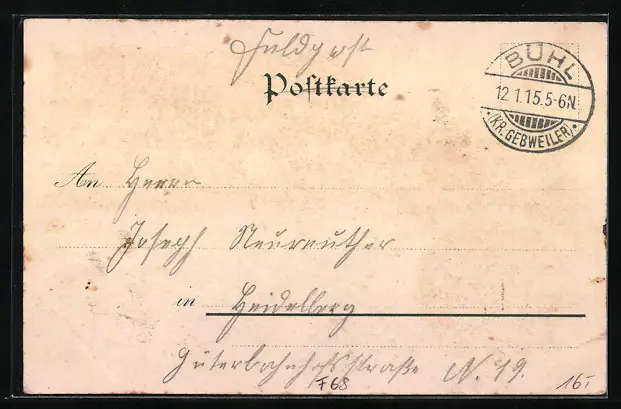 Feldpost
Postkarte
BÜHL
12.1.15.5-6N.
(KR. GEBWEILER)
An Herrn
Joseph Neureuther
in Heidelberg
Güterbahnhofsstraße N. 19.
F68
16I